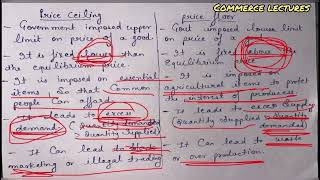 COMMERCE LECTURES
Price Ceiling
- Government imposed upper
limit on price of a good.
- It is fixed lower than
the equilibrium price.
- It is imposed on essential
items so that common
people can afford.
- It leads to excess
demand (Quantity demanded >
Quantity supplied)
- It can lead to black
marketing or illegal trading
price floor
- Govt imposed lower limit
on price of a
- It is fixed above the
equilibrium price
- It is imposed
agricultural items to protect
the interest of producers
- It leads to excess supply
(Quantity supplied > Quantity
demanded)
- It can lead to waste
or over production.